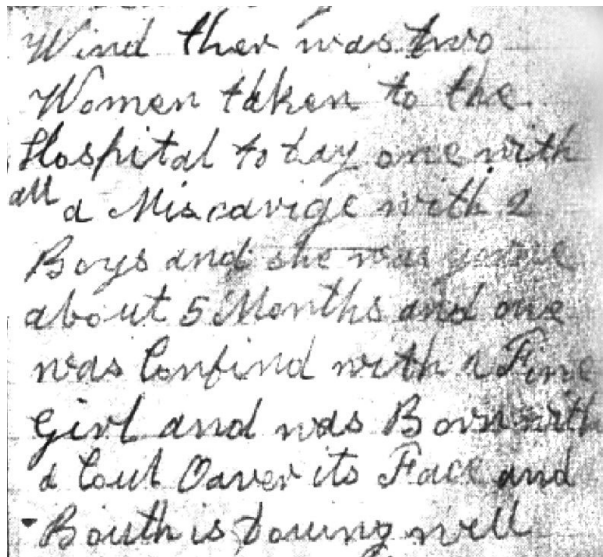 Wind ther was two
Women taken to the
Hospital to day one with
all a Miscarige with 2
Boys and she was gone
about 5 Months and one
was Confind with a Fine
Girl and was Born with
a Coul Oaver its Face and
Bouth is douing well